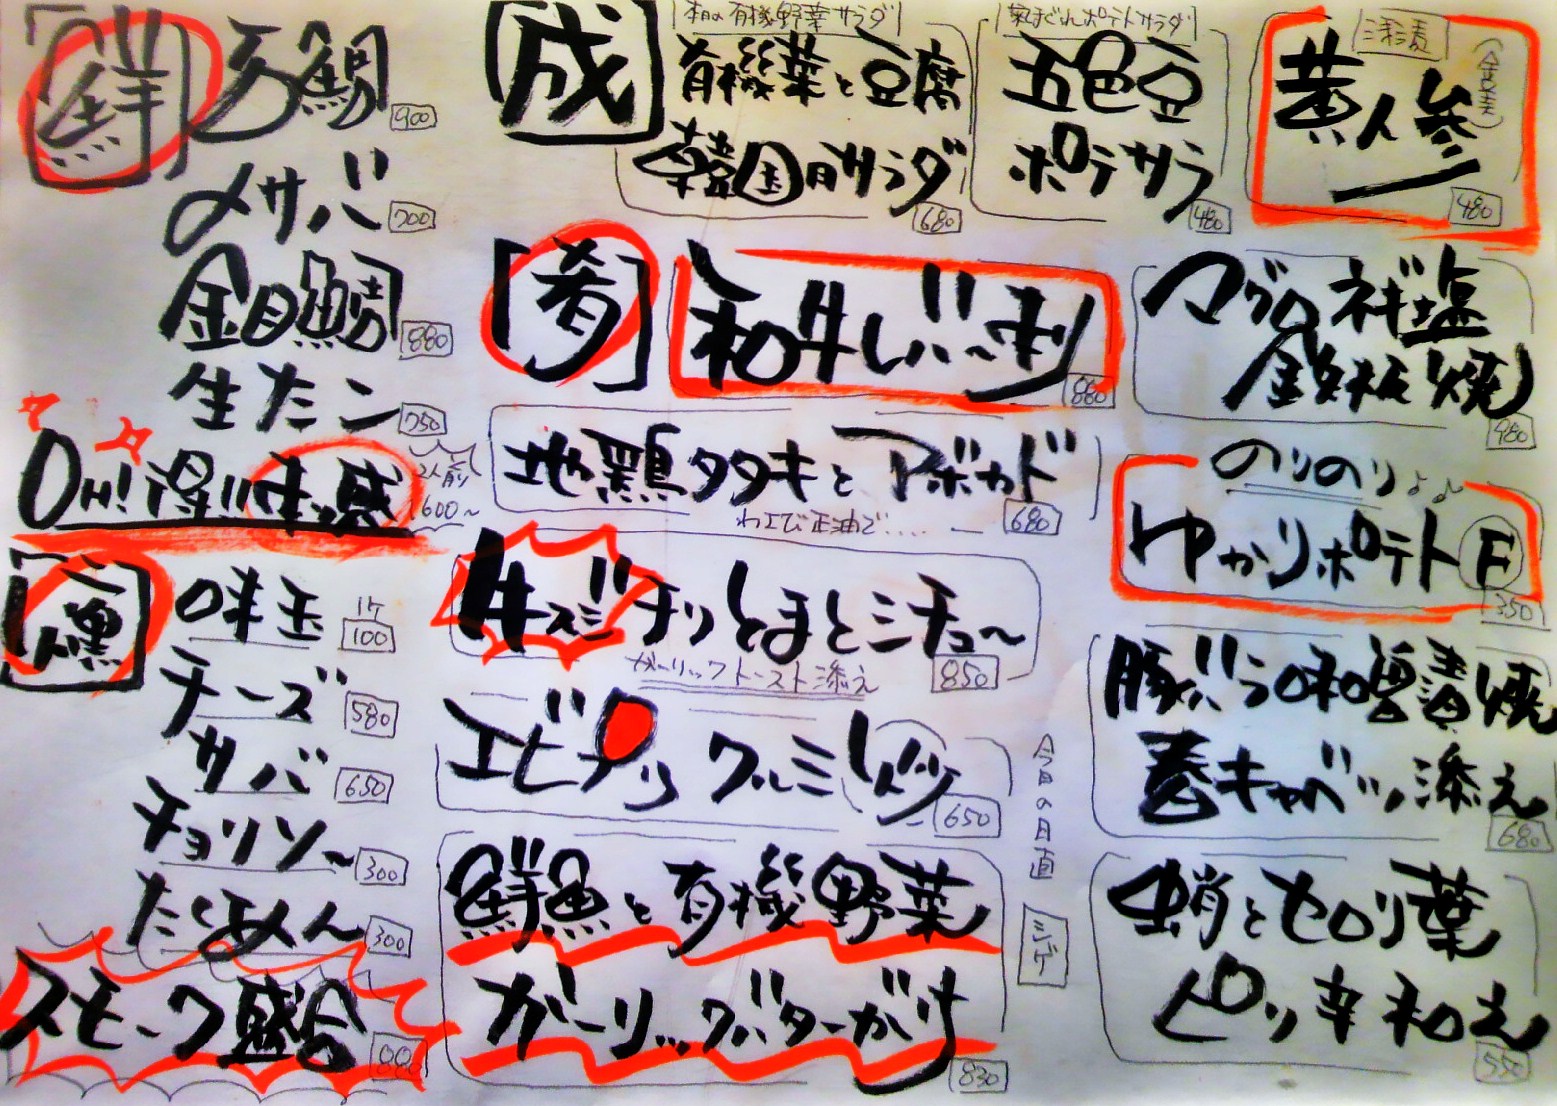 鮮
石鯛
900
〆サバ
700
金目鯛
880
生たこ
750
OH!得!!生盛
2人前
1600~
燻
味玉
1ケ
100
チーズ
580
サバ
650
チョリソ~
300
たくあん
300
スモーク盛合
880
成
本日の有機野菜サラダ
有機菜と豆腐
韓国風サラダ
680
気まぐれポテトサラダ
五色豆
ポテサラ
480
黄人参
480
肴
和牛レバ~刺
880
マグロネギ塩
鉄板焼
980
地鶏タタキとアボカド
わさび正油で.....
680
のりのり♪♪
ゆかりポテトF
350
牛スジチリとまとシチュ~
ガーリックトースト添え
850
エビチリクルミレタス
650
豚バラ味噌漬焼
春キャベツ添え
680
鮮魚と有機野菜
ガーリックバターがけ
830
今日の日直
シゲ
蛸とセロリ葉
ピリ辛和え
550